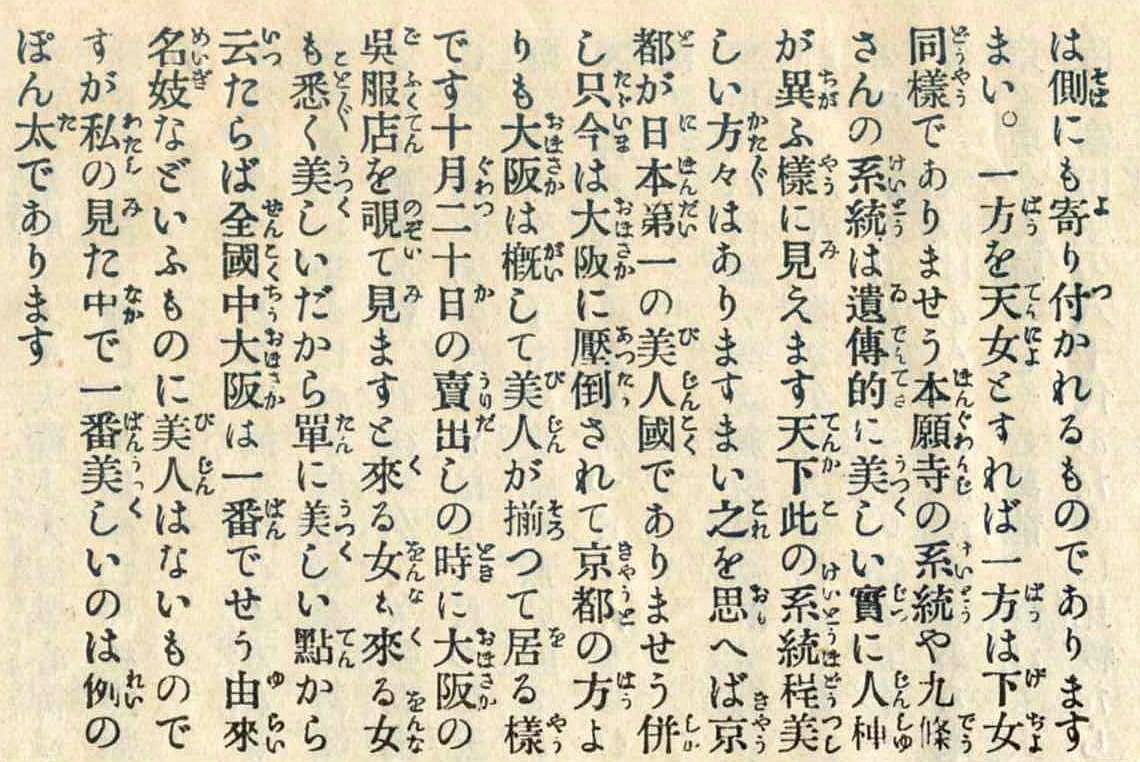 は側にも寄り付かれるものであります
まい。一方を天女とすれば一方は下女
同樣でありませう本願寺の系統や九條
さんの系統は遺傳的に美しい實に人種
が異ふ樣に見えます天下此の系統程美
しい方々はありますまい之を思へば京
都が日本第一の美人國でありませう併
し只今は大阪に壓倒されて京都の方よ
りも大阪は槪して美人が揃つて居る樣
です十月二十日の賣出しの時に大阪の
吳服店を覗て見ますと來る女も來る女
も悉く美しいだから單に美しい點から
云たらば全國中大阪は一番でせう由來
名妓などいふものに美人はないもので
すが私の見た中で一番美しいのは例の
ぽん太であります